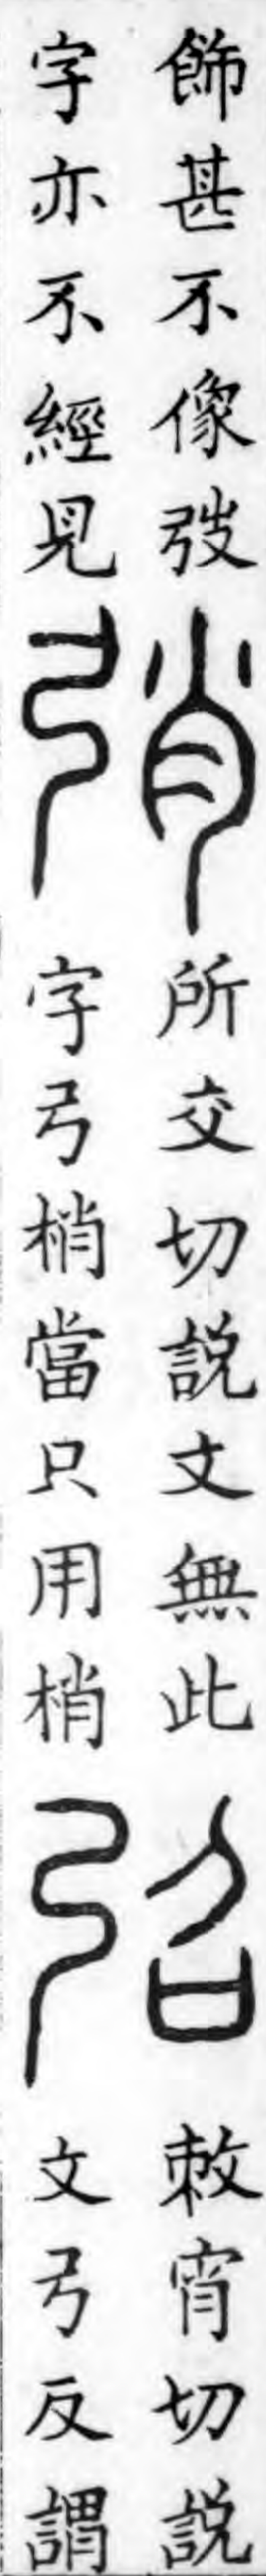 飾甚不像弢
字亦不經見
弰
所交切説文無此
字弓梢當只用梢
弨
敕宵切説
文弓反謂